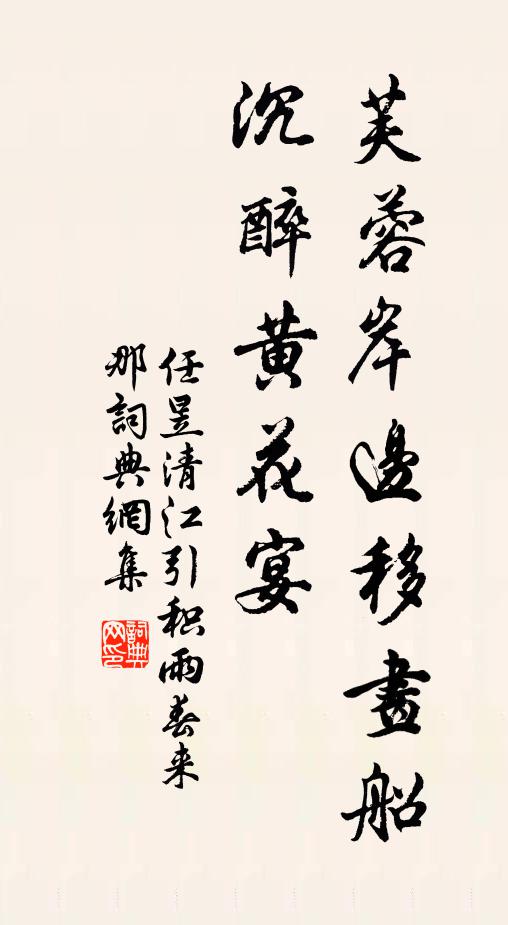 芙蓉岸邊移畫船
沉醉黄花宴
任昱清江引积雨春来
那詞典網集
詞典网印